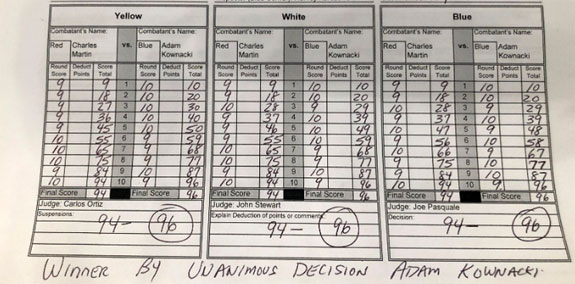 Yellow
Combatant's Name: Combatant's Name:
Red Charles Martin vs. Blue Adam Kownacki
Round Score Deduct Points Score Total Round Score Deduct Points Score Total
9 9 1 10 10
9 18 2 10 20
9 27 3 10 30
9 36 4 10 40
9 45 5 10 50
10 55 6 9 59
10 65 7 9 68
10 75 8 9 77
9 84 9 10 87
10 94 10 9 96
Final Score 94 Final Score 96
Judge: Carlos Ortiz
Suspensions
94- 96
White
Combatant's Name: Combatant's Name:
Red Charles Martin vs. Blue Adam Kownacki
Round Score Deduct Points Score Total Round Score Deduct Points Score Total
9 9 1 10 10
9 18 2 10 20
10 28 3 9 29
9 37 4 10 39
9 46 5 10 49
9 55 6 10 59
10 65 7 9 68
10 75 8 9 77
9 84 9 10 87
10 94 10 9 96
Final Score 94 Final Score 96
Judge: John Stewart
Explain Deduction of points or comments
94- 96
Blue
Combatant's Name: Combatant's Name:
Red Charles Martin vs. Blue Adam Kownacki
Round Score Deduct Points Score Total Round Score Deduct Points Score Total
9 9 1 10 10
9 18 2 10 20
10 28 3 9 29
9 37 4 10 39
10 47 5 9 48
9 56 6 10 58
10 66 7 9 67
9 75 8 10 77
9 84 9 10 87
10 94 10 9 96
Final Score 94 Final Score 96
Judge: Joe Pasquale
Decision:
94- 96
WINNER BY UNANIMOUS DECISION ADAM KOWNACKI